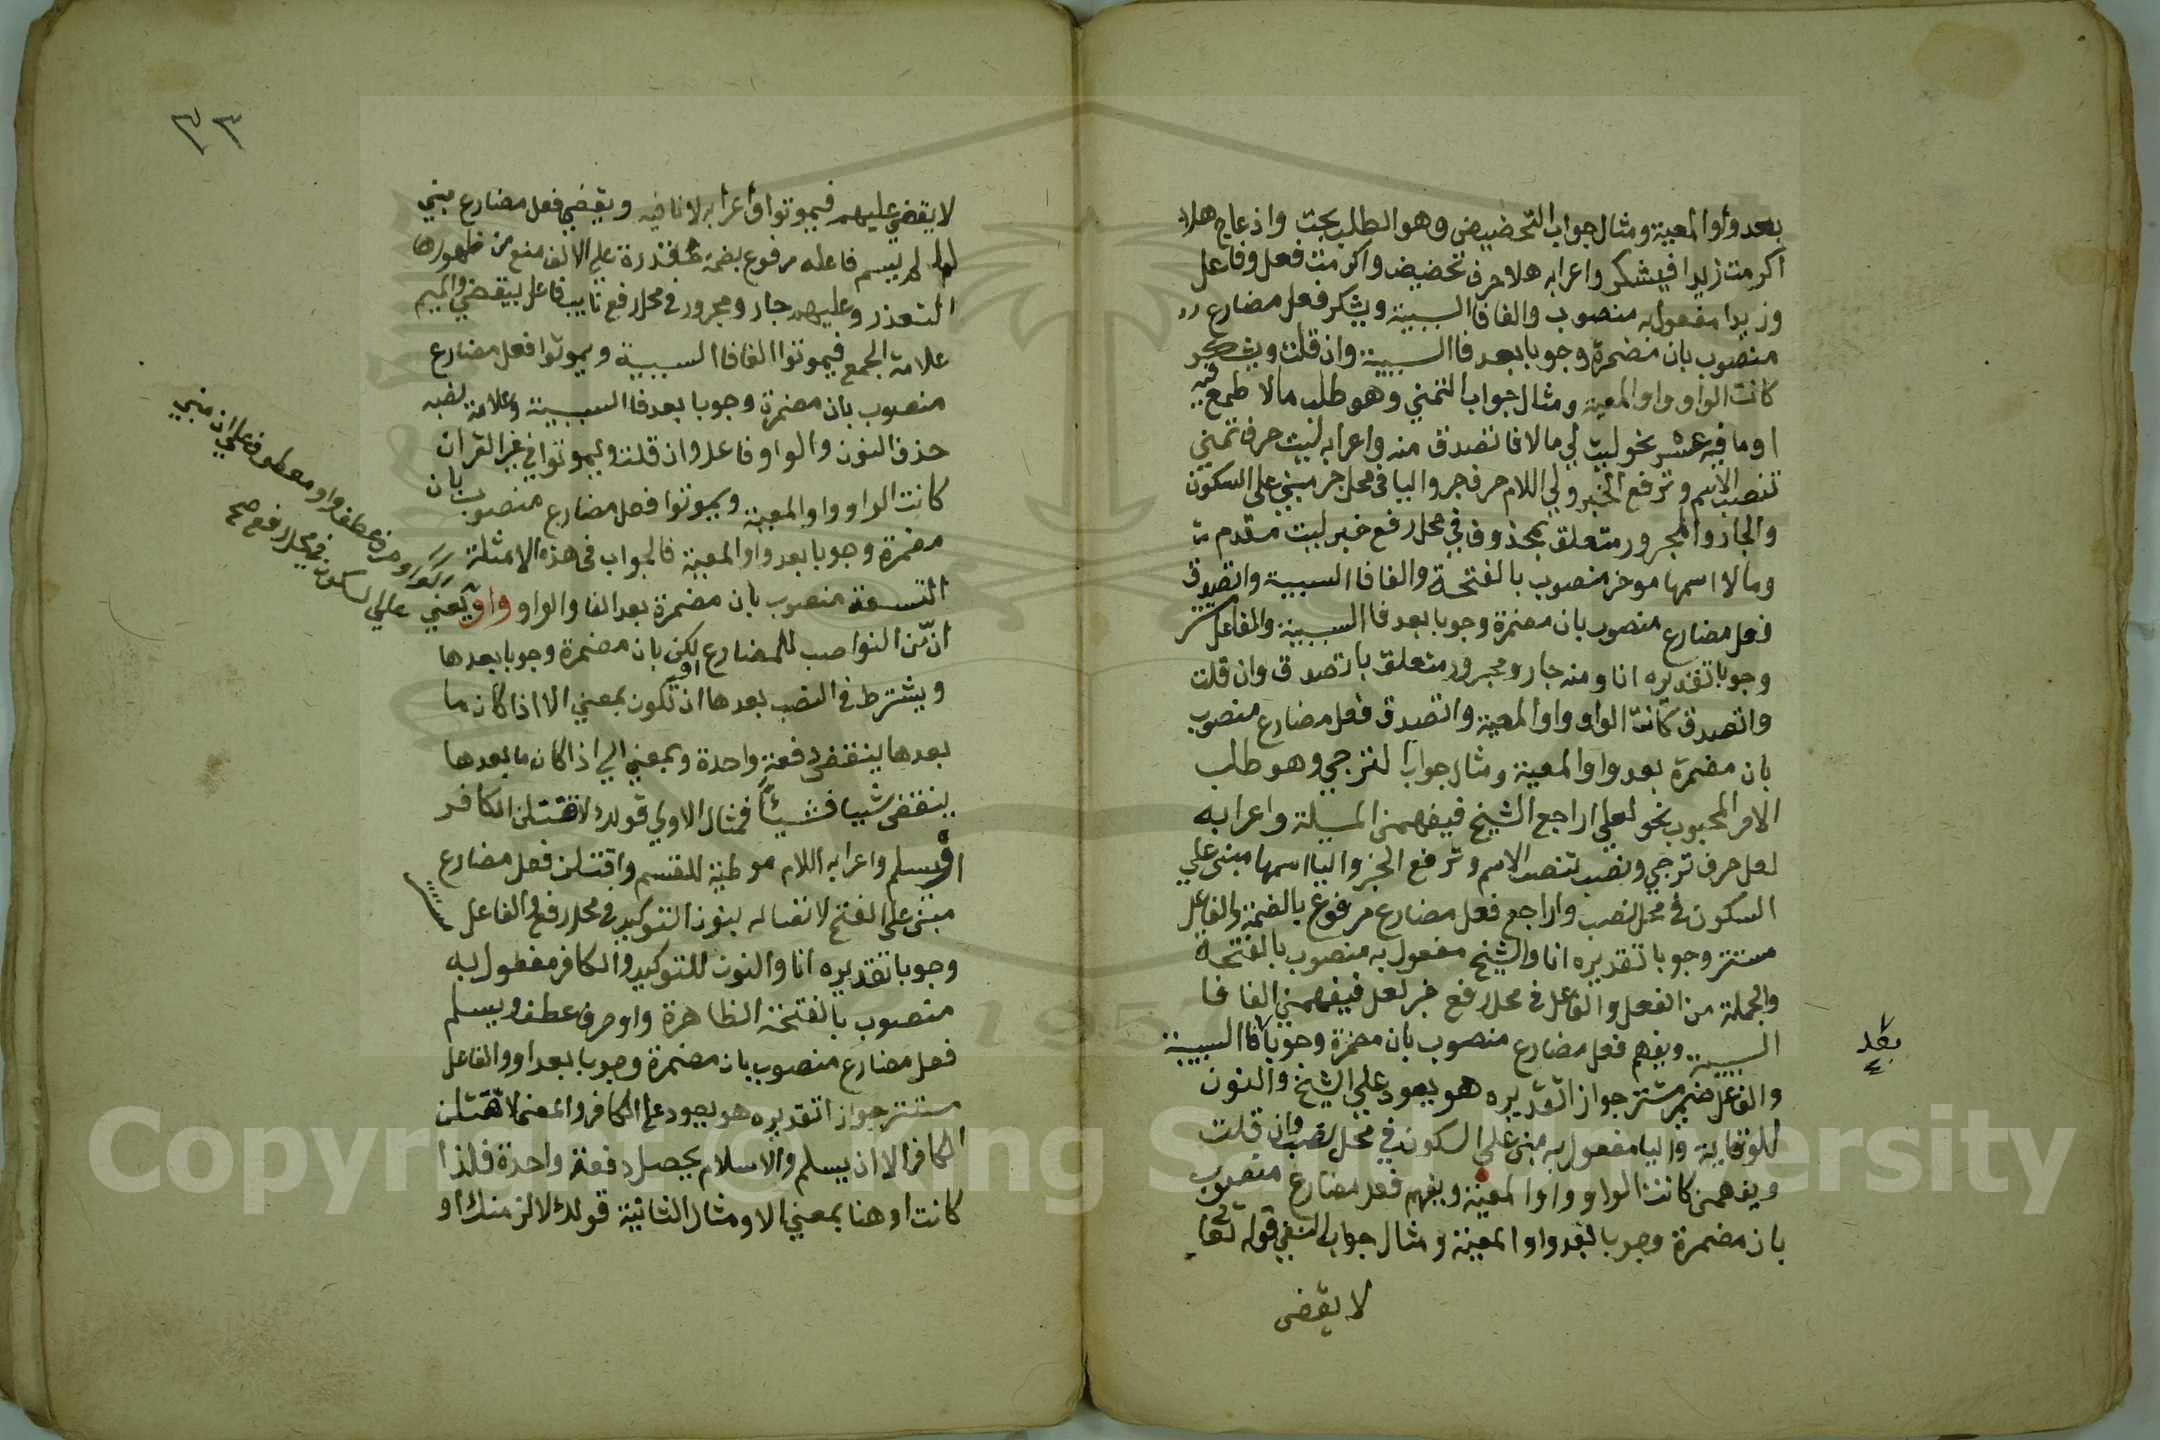 بعد واو المعية ومثال جواب التحضيض وهو الطلب بحث وازعاج هلا
اكرمت زيدا فيشكر واعرابه هلا حرف تحضيض واكرمت فعل وفاعل
وزيدا مفعول به منصوب والفا فا السببية ويشكر فعل مضارع
منصوب بان مضمرة وجوبا بعد فا السببية وان قلت ويشكر
كانت الواو واو المعية ومثال جواب التمني وهو طلب مالا طمع فيه
او ما فيه عسر نحو ليت لي مالا فاتصدق منه واعرابه ليت حرف تمني
تنصب الاسم وترفع الخبر ولي اللام حرف جر واليا في محل جر مبني على السكون
والجار والمجرور متعلق بمحذوف في محل رفع خبر ليت مقدم
ومالا اسمها موخر منصوب بالفتحة والفا فا السببية واتصدق
فعل مضارع منصوب بان مضمرة وجوبا بعد فا السببية والفاعل مستتر
وجوبا تقديره انا ومنه جار ومجرور متعلق باتصدق وان قلت
واتصدق كانت الواو واو المعية واتصدق فعل مضارع منصوب
بان مضمرة بعد واو المعية ومثال جواب الترجي وهو طلب
الامر المحبوب نحو لعلي اراجع الشيخ فيفهمني المسيلة واعرابه
لعل حرف ترجي ونصب تنصب الاسم وترفع الخبر واليا اسمها مبني علي
السكون في محل نصب واراجع فعل مضارع مرفوع بالضمة والفاعل
مستتر وجوبا تقديره انا والشيخ مفعول به منصوب بالفتحة
والجملة من الفعل والفاعل في محل رفع خبر لعل فيفهمني الفا فا
السببية ويفهم فعل مضارع منصوب بان مضمرة وجوبا فا السببية
بعد
والفاعل ضمير مستتر جوازا تقديره هو يعود علي الشيخ والنون
للوقاية واليا مفعول به مبني علي السكون في محل نصب وان قلت
ويفهمني كانت الواو واو المعية ويفهم فعل مضارع منصوب
بان مضمرة وجوبا بعد واو المعية ومثال جواب النفي قوله تعا
لا يقضى
٣٣
لا يقضي عليهم فيموتوا واعرابه لا نافيه ويقضي فعل مضارع مبني
لما لم يسم فاعله مرفوع بضمة مقدرة علي الالف منع من ظهورها
التعذر وعليهم جار ومجرور في محل رفع نايب فاعل بيقضي والميم
علامة الجمع فيموتوا الفا فا السببية ويموتوا فعل مضارع
منصوب بان مضمرة وجوبا بعد فا السببية وعلامة نصبه
حذف النون والواو فاعل وان قلت ويموتوا في غير القران
كانت الواو واو المعية ويموتوا فعل مضارع منصوب بان
مضمرة وجوبا بعد واو المعية فالجواب في هذه الامثلة
التسعة منصوب بان مضمرة بعد الفا والواو واو يعني
ان من النواصب للمضارع لكن بان مضمرة وجوبا بعدها
او
ويشترط في النصب بعدها ان تكون بمعني الا اذا كان ما
بعدها ينقضي دفعة واحدة وبمعني الي اذا كان ما بعدها
ينقضي شيا فشيئا فمثال الاولي قولك لاقتلن الكافر
او يسلم واعرابه اللام موطية للقسم واقتلن فعل مضارع
مبني على الفتح لاتصاله بنون التوكيد في محل رفع والفاعل
وجوبا تقديره انا والنون للتوكيد والكافر مفعول به
منصوب بالفتحة الظاهرة واو حرف عطف ويسلم
فعل مضارع منصوب بان مضمرة وجوبا بعد او والفاعل
مستتر جوازا تقديره هو يعود على الكافر والمعنى لاقتلن
الكافر الا ان يسلم والاسلام يحصل دفعة واحدة فلذا
كانت او هنا بمعني الا ومثال الثانية قولك لالزمنك او
حرف عطف واو معطوف علي ان مبني
علي السكون في محل رفع صح
Copyright © King Saud University
1957